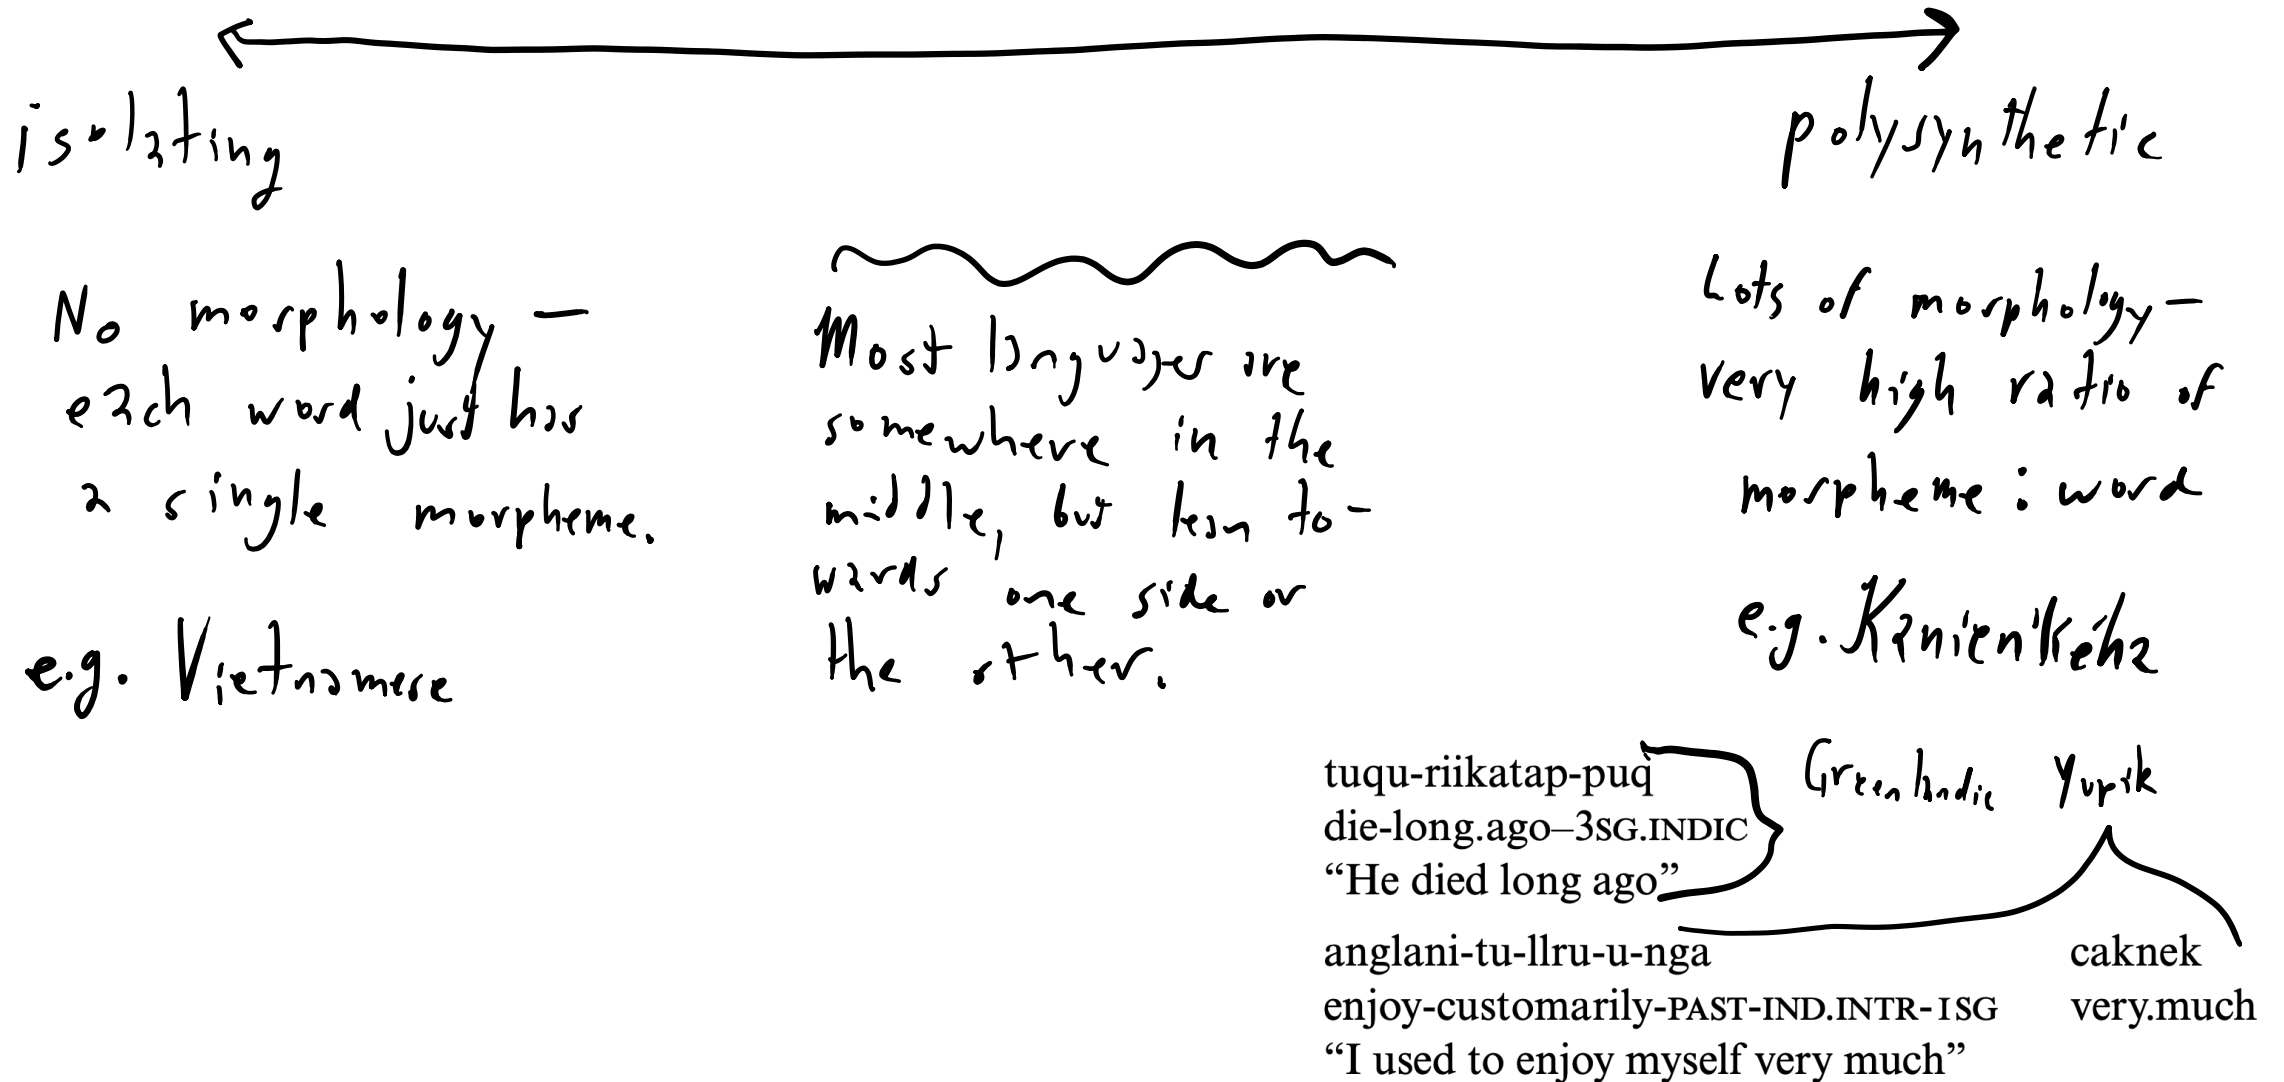 isolating
polysynthetic
No morphology —
each word just has
a single morpheme.
e.g. Vietnamese
Most languages are
somewhere in the
middle, but lean to-
wards one side or
the other.
Lots of morphology —
very high ratio of
morpheme : word
e.g. Kanien'kéha
Greenlandic Yupik
tuqu-riikatap-puq
die-long.ago–3SG.INDIC
“He died long ago”
anglani-tu-llru-u-nga caknek
enjoy-customarily-PAST-IND.INTR-1SG very.much
“I used to enjoy myself very much”